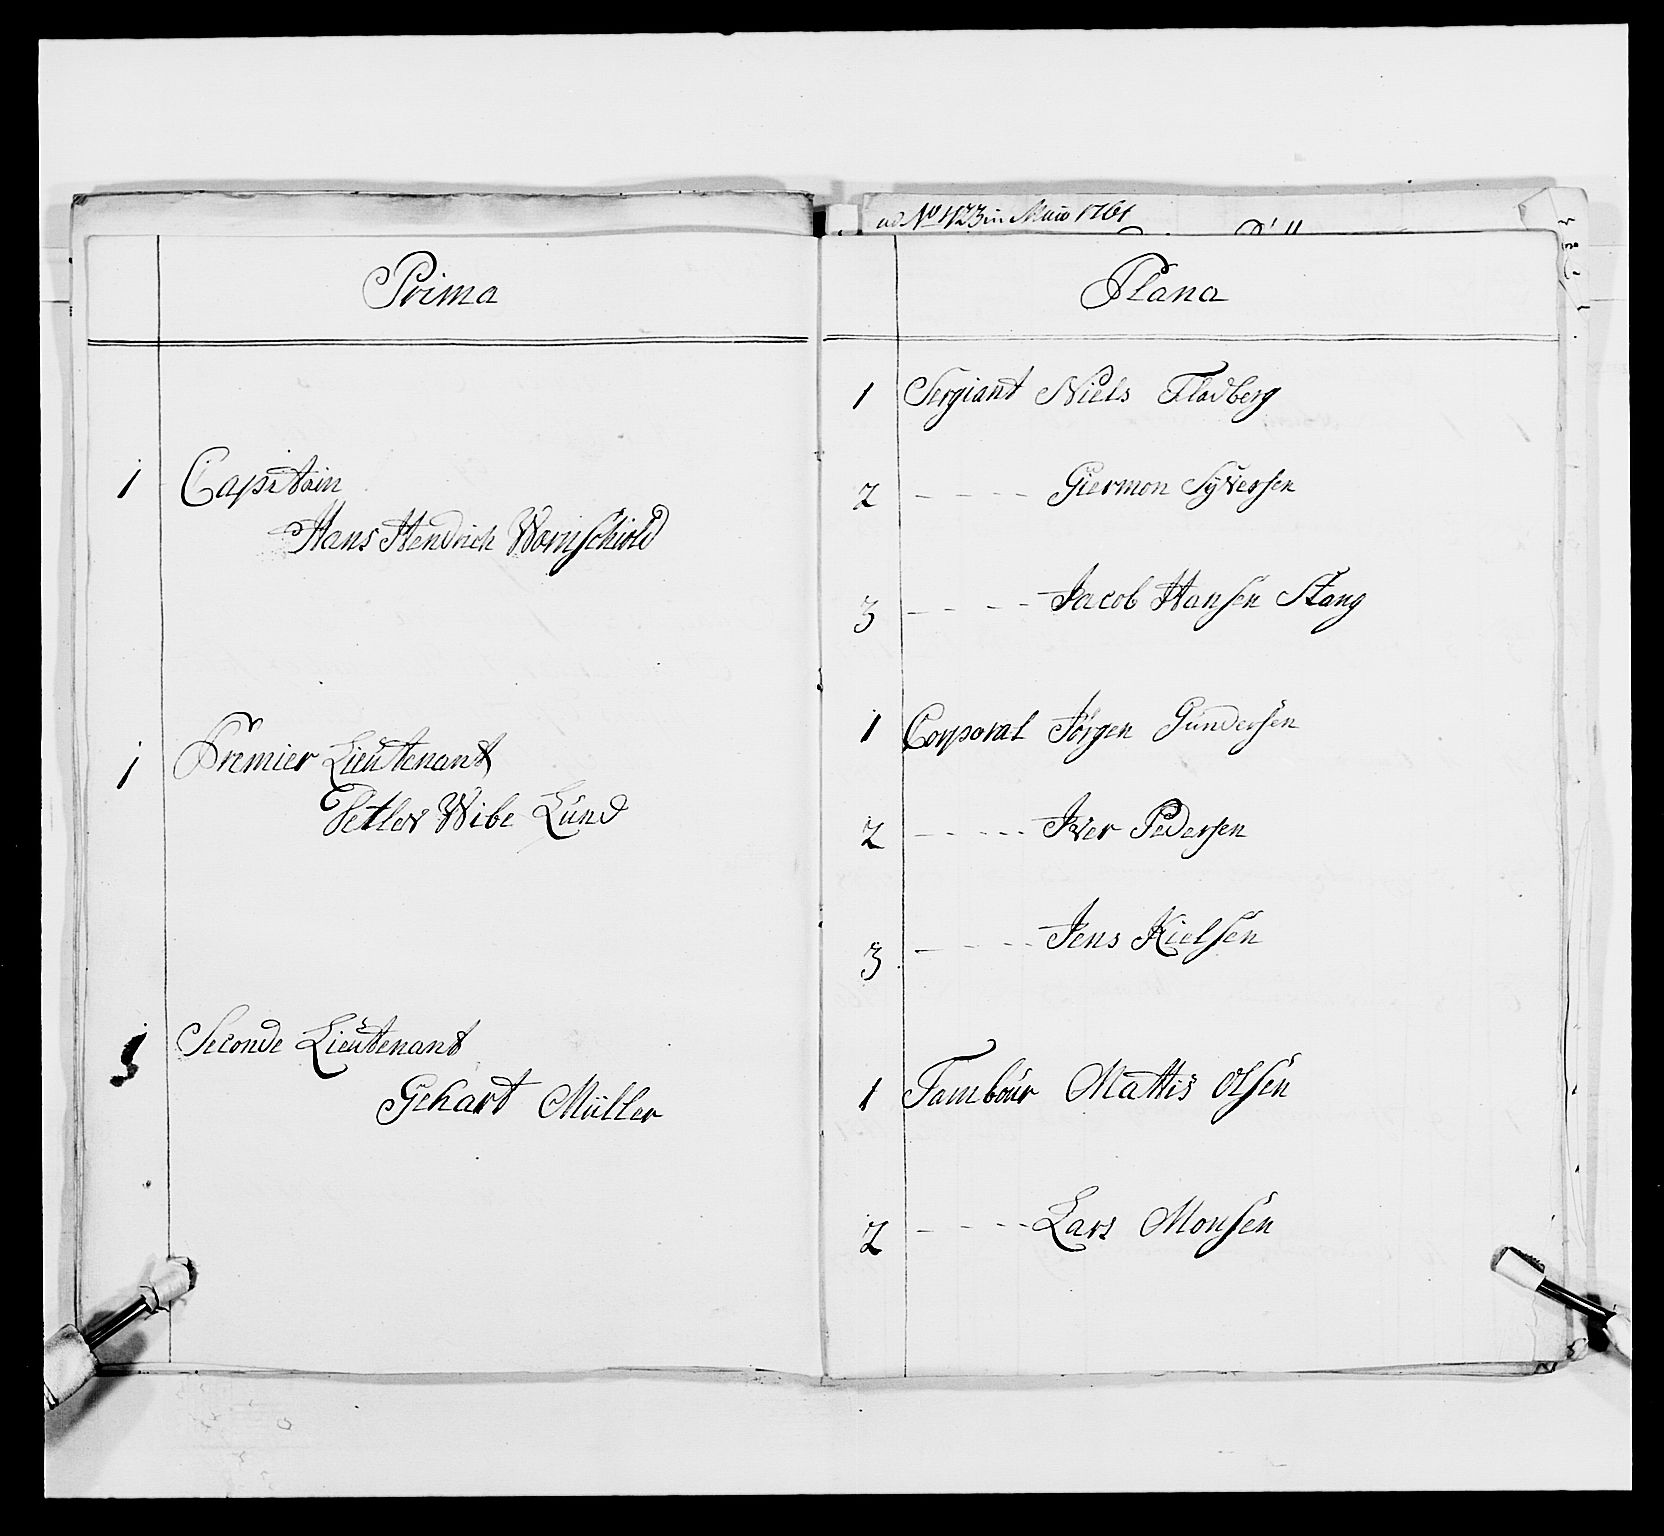 ad No 423 in Maio 1761
Prima
1 Capitain
Hans Hendrich Wornschiold
1 Premier Lieutenant
Detlev Wibe Lund
1 Seconde Lieutenant
Gehart Müller
Plana
1 Sergiant Niels Fladberg
2 - - - - Giermon Syversen
3 - - - - Jacob Hansen Stang
1 Corporal Jörgen Gundersen
2 - - - - Iver Pedersen
3 - - - - Jens Kielsen
1 Tambour Mattis Olsen
2 - - - - Lars Monsen